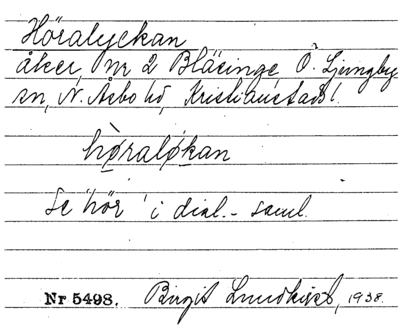 Höralyckan
åker, nr 2 Blåsinge, Ö. Ljungby
sn, N. Åsbo hd, Kristianstads l.
hø̀raløkan
Se 'hör' i dial.-saml.
Nr 5498. Birgit Lundkvist, 1938.